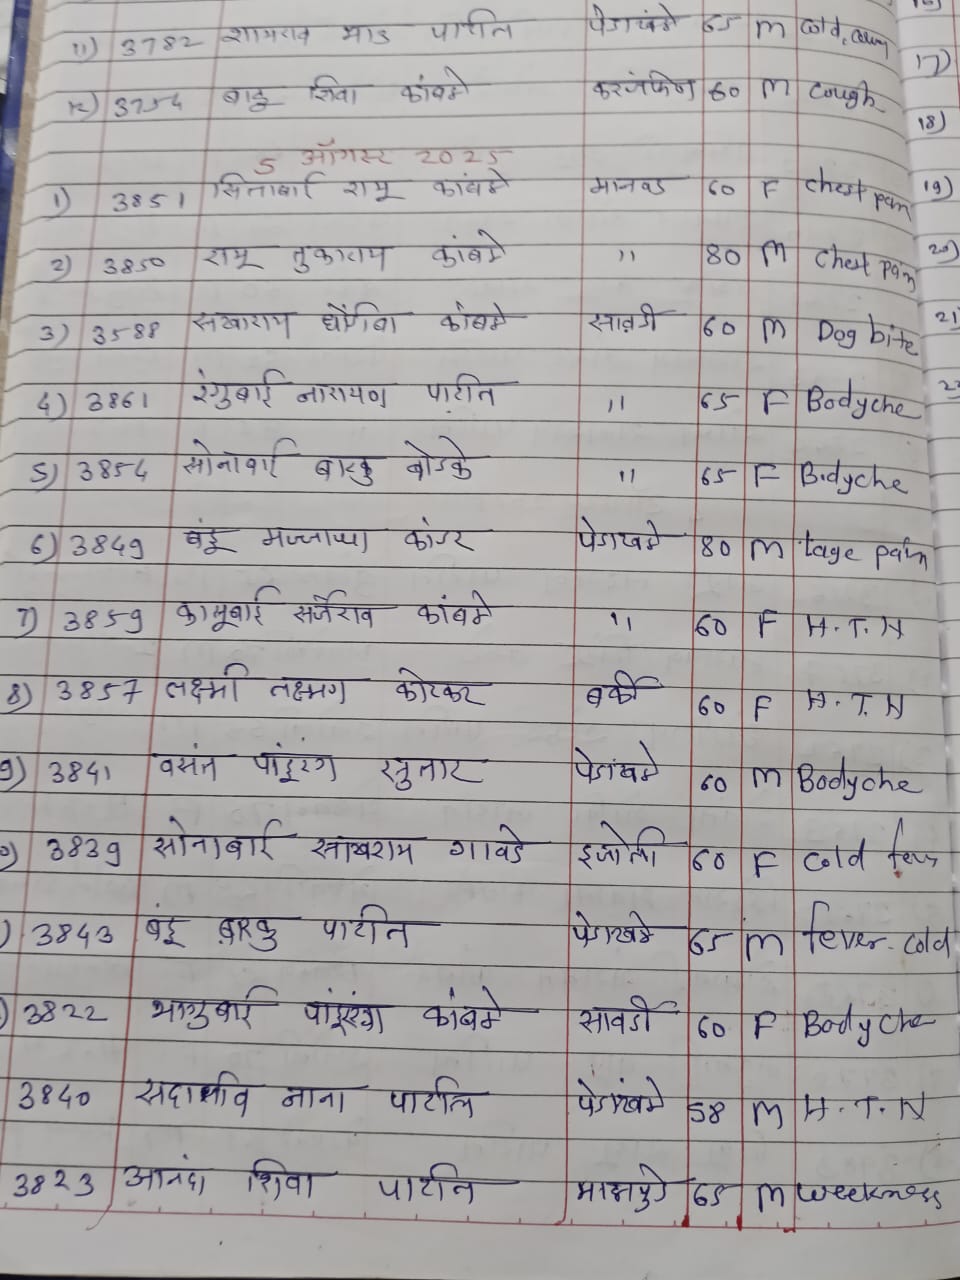 11) 3782 शामराव भाऊ पाटील पेडाखळे 65 M Cold,
१२) 3754 बाबू शिवा कांबळे करंजफेण 60 M Cough
5 ऑगस्ट 2025
1) 3851 सिताबाई रामू कांबळे मानवड 60 F Chest pain
2) 3850 रामू तुकाराम कांबळे " 80 M Chest pain
3) 3588 सखाराम धोंडिबा कांबळे सावर्डी 60 M Dog bite
4) 3861 रंगुबाई नारायण पाटील " 65 F Bodyche
5) 3854 सोनाबाई बारकु बोडके " 65 F Bodyche
6) 3849 बंडू कांडर पेडाखळे 80 M pain
7) 3859 कामूबाई सर्जेराव कांबळे " 60 F H.T.N
8) 3857 लक्ष्मी लक्ष्मण कोटकर बर्की 60 F H.T.N
9) 3841 वसंत पांडूरंग सुतार पेडाखळे 60 M Bodyche
3839 सोनाबाई साखराम गावडे इजोली 60 F Cold
) 3843 बंडू बारकु पाटील पेडाखळे 65 M fever-cold
) 3822 भागुबाई पांडूरंग कांबळे सावर्डी 60 F Bodyche
3840 सदाशीव नाना पाटील पेडाखळे 58 M H.T.N
3823 आनंदा शिवा पाटील 65 M weekness
16)
17)
18)
19)
20)
21)